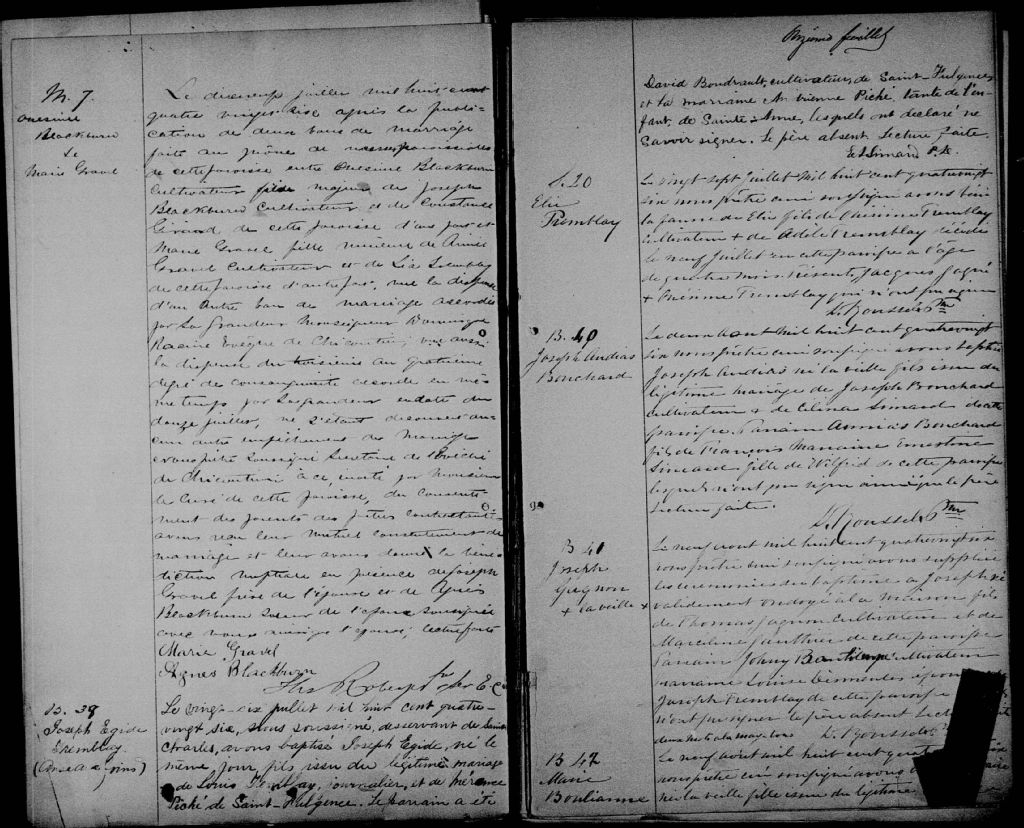 M. 7.
Onésime
Blackburn
&
Marie Gravel
Le dixneuf juillet mil huit cent
quatre vingt-six après la publi-
cation de deux bans de mariage
faite au prône de
de cette paroisse entre Onésime Blackburn
Cultivateur fils majeur de Joseph
Blackburn Cultivateur et de Constance
Girard de cette paroisse d'une part et
Marie Gravel fille mineure de Aimé
Gravel Cultivateur et de Tremblay
de cette paroisse d'autre part, vue la dispense
d'un autre ban de mariage accordée
par Sa Grandeur Monseigneur Dominique
Racine Evêque de Chicoutimi, vue aussi
la dispense du troisième au quatrième
degré de consanguinité accordée en mê
me temps par Sa Grandeur en date du
douze juillet, ne s'étant découvert au-
cun autre empêchement de Mariage
nous prêtre soussigné de l'Evêché
de Chicoutimi à ce invité par Monsieur
le Curé de cette paroisse, du consente
ment des parents des parties contractantes
avons reçu leur mutuel consentement de
mariage et leur avons donné la béné
diction nuptiale en présence de Joseph
Gravel père de l'épouse et de Agnès
Blackburn Soeur de l'époux soussignée
avec nous ainsi que l'épouse, lecture faite
Marie Gravel
Agnès Blackburn
Ths Roberge Ptre
B. 39
Joseph Egide
Tremblay
Le vingt-six juillet mil huit cent quatre-
vingt six, nous soussigné, desservant de Saint
Charles, avons baptisé Joseph Egide, né le
même jour, fils issu du légitime mariage
de Louis Tremblay, journalier, et de
Piché de Saint-Fulgence. Le parrain a été
Onzième feuillet
David Boudrault, cultivateur, de Saint-Fulgence,
et la marraine Piché, tante de l'en-
fant, de Sainte-Anne, lesquels ont déclaré ne
savoir signer. Le père absent. Lecture faite.
Simard
S. 20
Elie
Tremblay
Le vingt sept Juillet mil huit cent quatrevingt
six nous prêtre curé soussigné avons inhu
Elie fils de Onésime Tremblay
cultivateur & de Adèle Tremblay décédé
le neuf Juillet en cette paroisse à l'âge
de quatre mois. Présents, Jacques Gagné
& Onésime Tremblay qui n'ont pu signer
L. Roussel Ptre
B. 40
Joseph Andréas
Bouchard
Le deux Août mil huit cent quatrevingt
six nous prêtre curé soussigné avons baptisé
Joseph Andréas né la veille fils issu du
légitime mariage de Joseph Bouchard
cultivateur & de Célina Simard de cette
paroisse. Parrain Bouchard
fils de François Marraine Ernestine
Simard fille de Wilfrid de cette paroisse
lesquels n'ont pu signer ainsi que le père
Lecture faite.
L. Roussel Ptre
B 41
Joseph
Gagnon
+ la veille
Le neuf août mil huit cent quatrevingt six
nous prêtre curé soussigné avons suppléé
les cérémonies du baptême à Joseph né +
validement ondoyé à la maison fils
de Thomas Gagnon Cultivateur et de
Marceline Gauthier de cette paroisse
Parrain Johny cultivateur
marraine Louise épouse
Joseph Tremblay de cette paroisse
n'ont pu signer le père absent Lect
L. Roussel
B 42
Marie
Boulianne
Le neuf août mil huit cent quatre
nous prêtre curé soussigné avons
née la veille fille issue du légitime